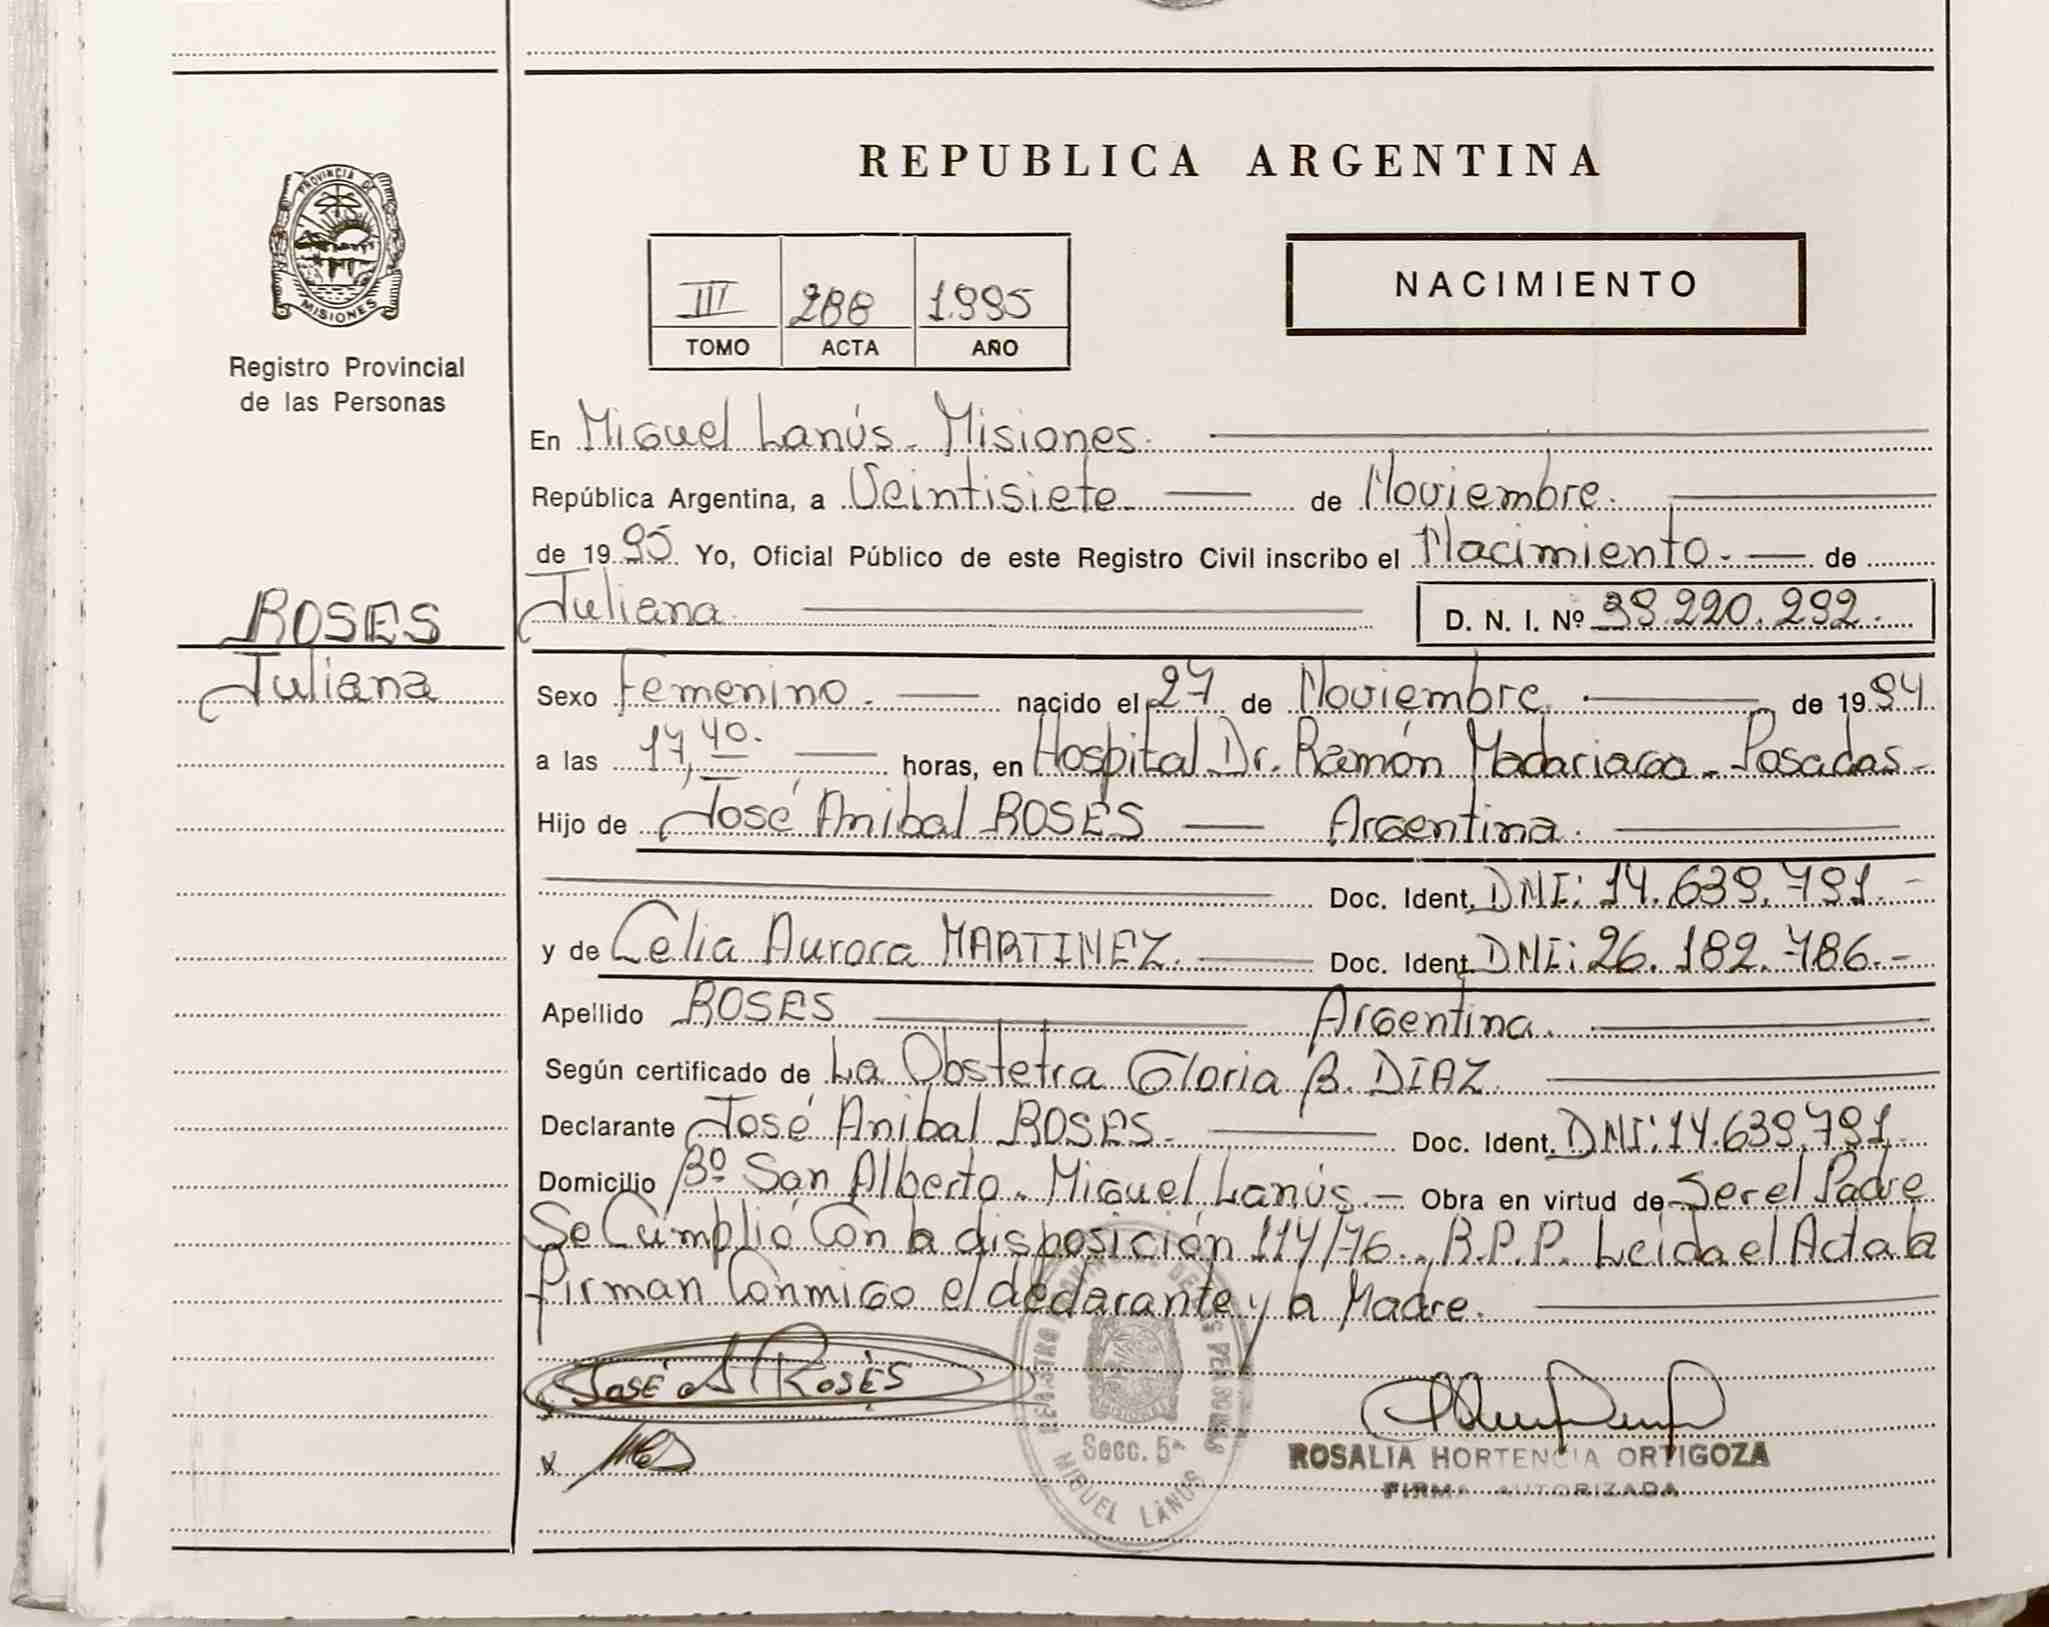 REPUBLICA ARGENTINA
PROVINCIA DE
MISIONES
Registro Provincial
de las Personas
III 288 1.995
TOMO ACTA AÑO
NACIMIENTO
En Miguel Lanús - Misiones.
República Argentina, a Veintisiete de Noviembre.
de 1995 Yo, Oficial Público de este Registro Civil inscribo el Nacimiento. de
ROSES
Juliana
Juliana. D. N. I. Nº 39.220.292.
Sexo Femenino. nacido el 27 de Noviembre. de 1994
a las 17,40. horas, en Hospital Dr. Ramón Madariaga - Posadas -
Hijo de José Anibal ROSES Argentina.
Doc. Ident. DNI: 14.639.791.-
y de Celia Aurora MARTINEZ. Doc. Ident. DNI: 26.182.786.-
Apellido ROSES Argentina.
Según certificado de La Obstetra Gloria B. DIAZ.
Declarante José Anibal ROSES. Doc. Ident. DNI: 14.639.791.-
Domicilio Bº San Alberto. Miguel Lanús.- Obra en virtud de Ser el Padre
Se Cumplió Con la disposición 114/76.. R.P.P. Leida el Acta la
firman Conmigo el declarante y la Madre.
José A Rosés
x
Secc. 5ª
MIGUEL LANUS
ROSALIA HORTENCIA ORTIGOZA
FIRMA AUTORIZADA